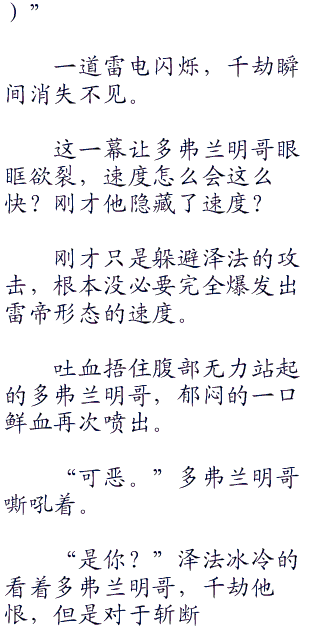 ）”
一道雷电闪烁，千劫瞬
间消失不见。
这一幕让多弗兰明哥眼
眶欲裂，速度怎么会这么
快？刚才他隐藏了速度？
刚才只是躲避泽法的攻
击，根本没必要完全爆发出
雷帝形态的速度。
吐血捂住腹部无力站起
的多弗兰明哥，郁闷的一口
鲜血再次喷出。
“可恶。”多弗兰明哥
嘶吼着。
“是你？”泽法冰冷的
看着多弗兰明哥，千劫他
恨，但是对于斩断